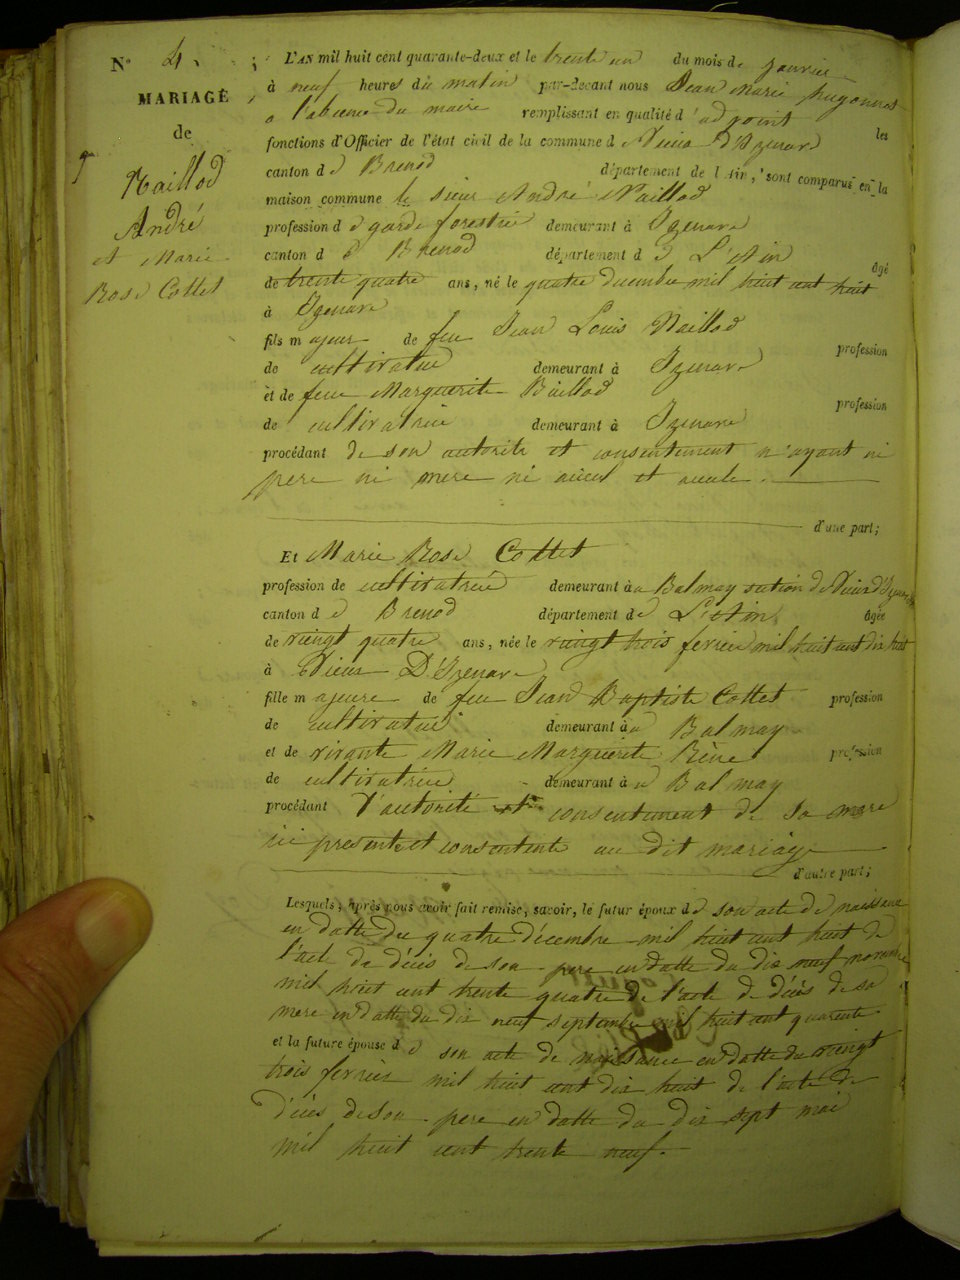 N° 4
MARIAGE
de
Naillod
André
et Marie
Rose Cottet
L'AN mil huit cent quarante-deux et le trente un du mois de janvier
à neuf heures du matin par-devant nous Jean Marie hugonnet
a l'absence du maire remplissant en qualité d'adjoint les
fonctions d'Officier de l'état civil de la commune d Vieux D'Izenave
canton d d Brenod département de l'Ain, sont comparus en la
maison commune le sieur André Naillod
profession d d garde forestier demeurant à Izenave
canton d d Brenod département d d L'Ain âgé
de trente quatre ans, né le quatre decembre mil huit cent huit
à Izenave
fils majeur de feu Jean Louis Naillod profession
de cultivateur demeurant à Izenave
et de feue Marguerite Baillod profession
de cultivatrice demeurant à Izenave
procédant de son autorite et consentement n'ayant ni
pere ni mere ni aieul et aieule.
d'une part;
Et Marie Rose Cottet
profession de cultivatrice demeurant à a Balmay section de Vieux d'Izenave
canton d d Brenod département de L'Ain âgée
de vieingt quatre ans, née le vieingt trois fevrier mil huit cent dix huit
à Vieux D'Izenave
fille majeure de feu Jean Baptiste Cottet profession
de cultivateur demeurant à a Balmay
et de vivante Marie Marguerite Rève profession
de cultivatrice demeurant à a Balmay
procédant d'autorité et consentement de sa mere
ici presente et consentente au dit mariage
d'autre part;
Lesquels, après nous avoir fait remise, savoir, le futur époux d d son acte de naissance
en datte du quatre décembre mil huit cent huit de
l'acte de décès de son pere en datte du dix neuf novembre
mil huit cent trente quatre de l'acte de décès de sa
mere en datte du dix neuf septembre mil huit cent quarente
et la future épouse d d son acte de naissance en datte du vieingt
trois fevrier mil huit cent dix huit de l'acte de
décès de son pere en datte du dix sept mai
mil huit cent trente neuf.